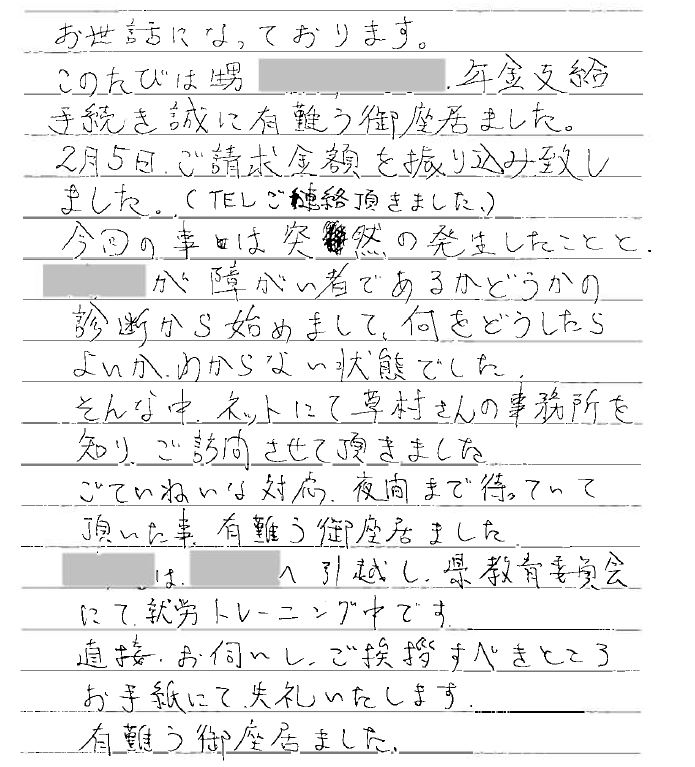 お世話になっております。
このたびは甥 、年金支給
手続き誠に有難う御座居ました。
2月5日、ご請求金額を振り込み致し
ました。(TELご連絡頂きました。)
今回の事は突然の発生したことと、
が障がい者であるかどうかの
診断から始めまして、何をどうしたら
よいか、わからない状態でした。
そんな中、ネットにて草村さんの事務所を
知り、ご訪問させて頂きました
ごていねいな対応、夜間まで待っていて
頂いた事、有難う御座居ました
は、 へ引越し、県教育委員会
にて、就労トレーニング中です。
直接、お伺いし、ご挨拶すべきところ
お手紙にて失礼いたします。
有難う御座居ました。